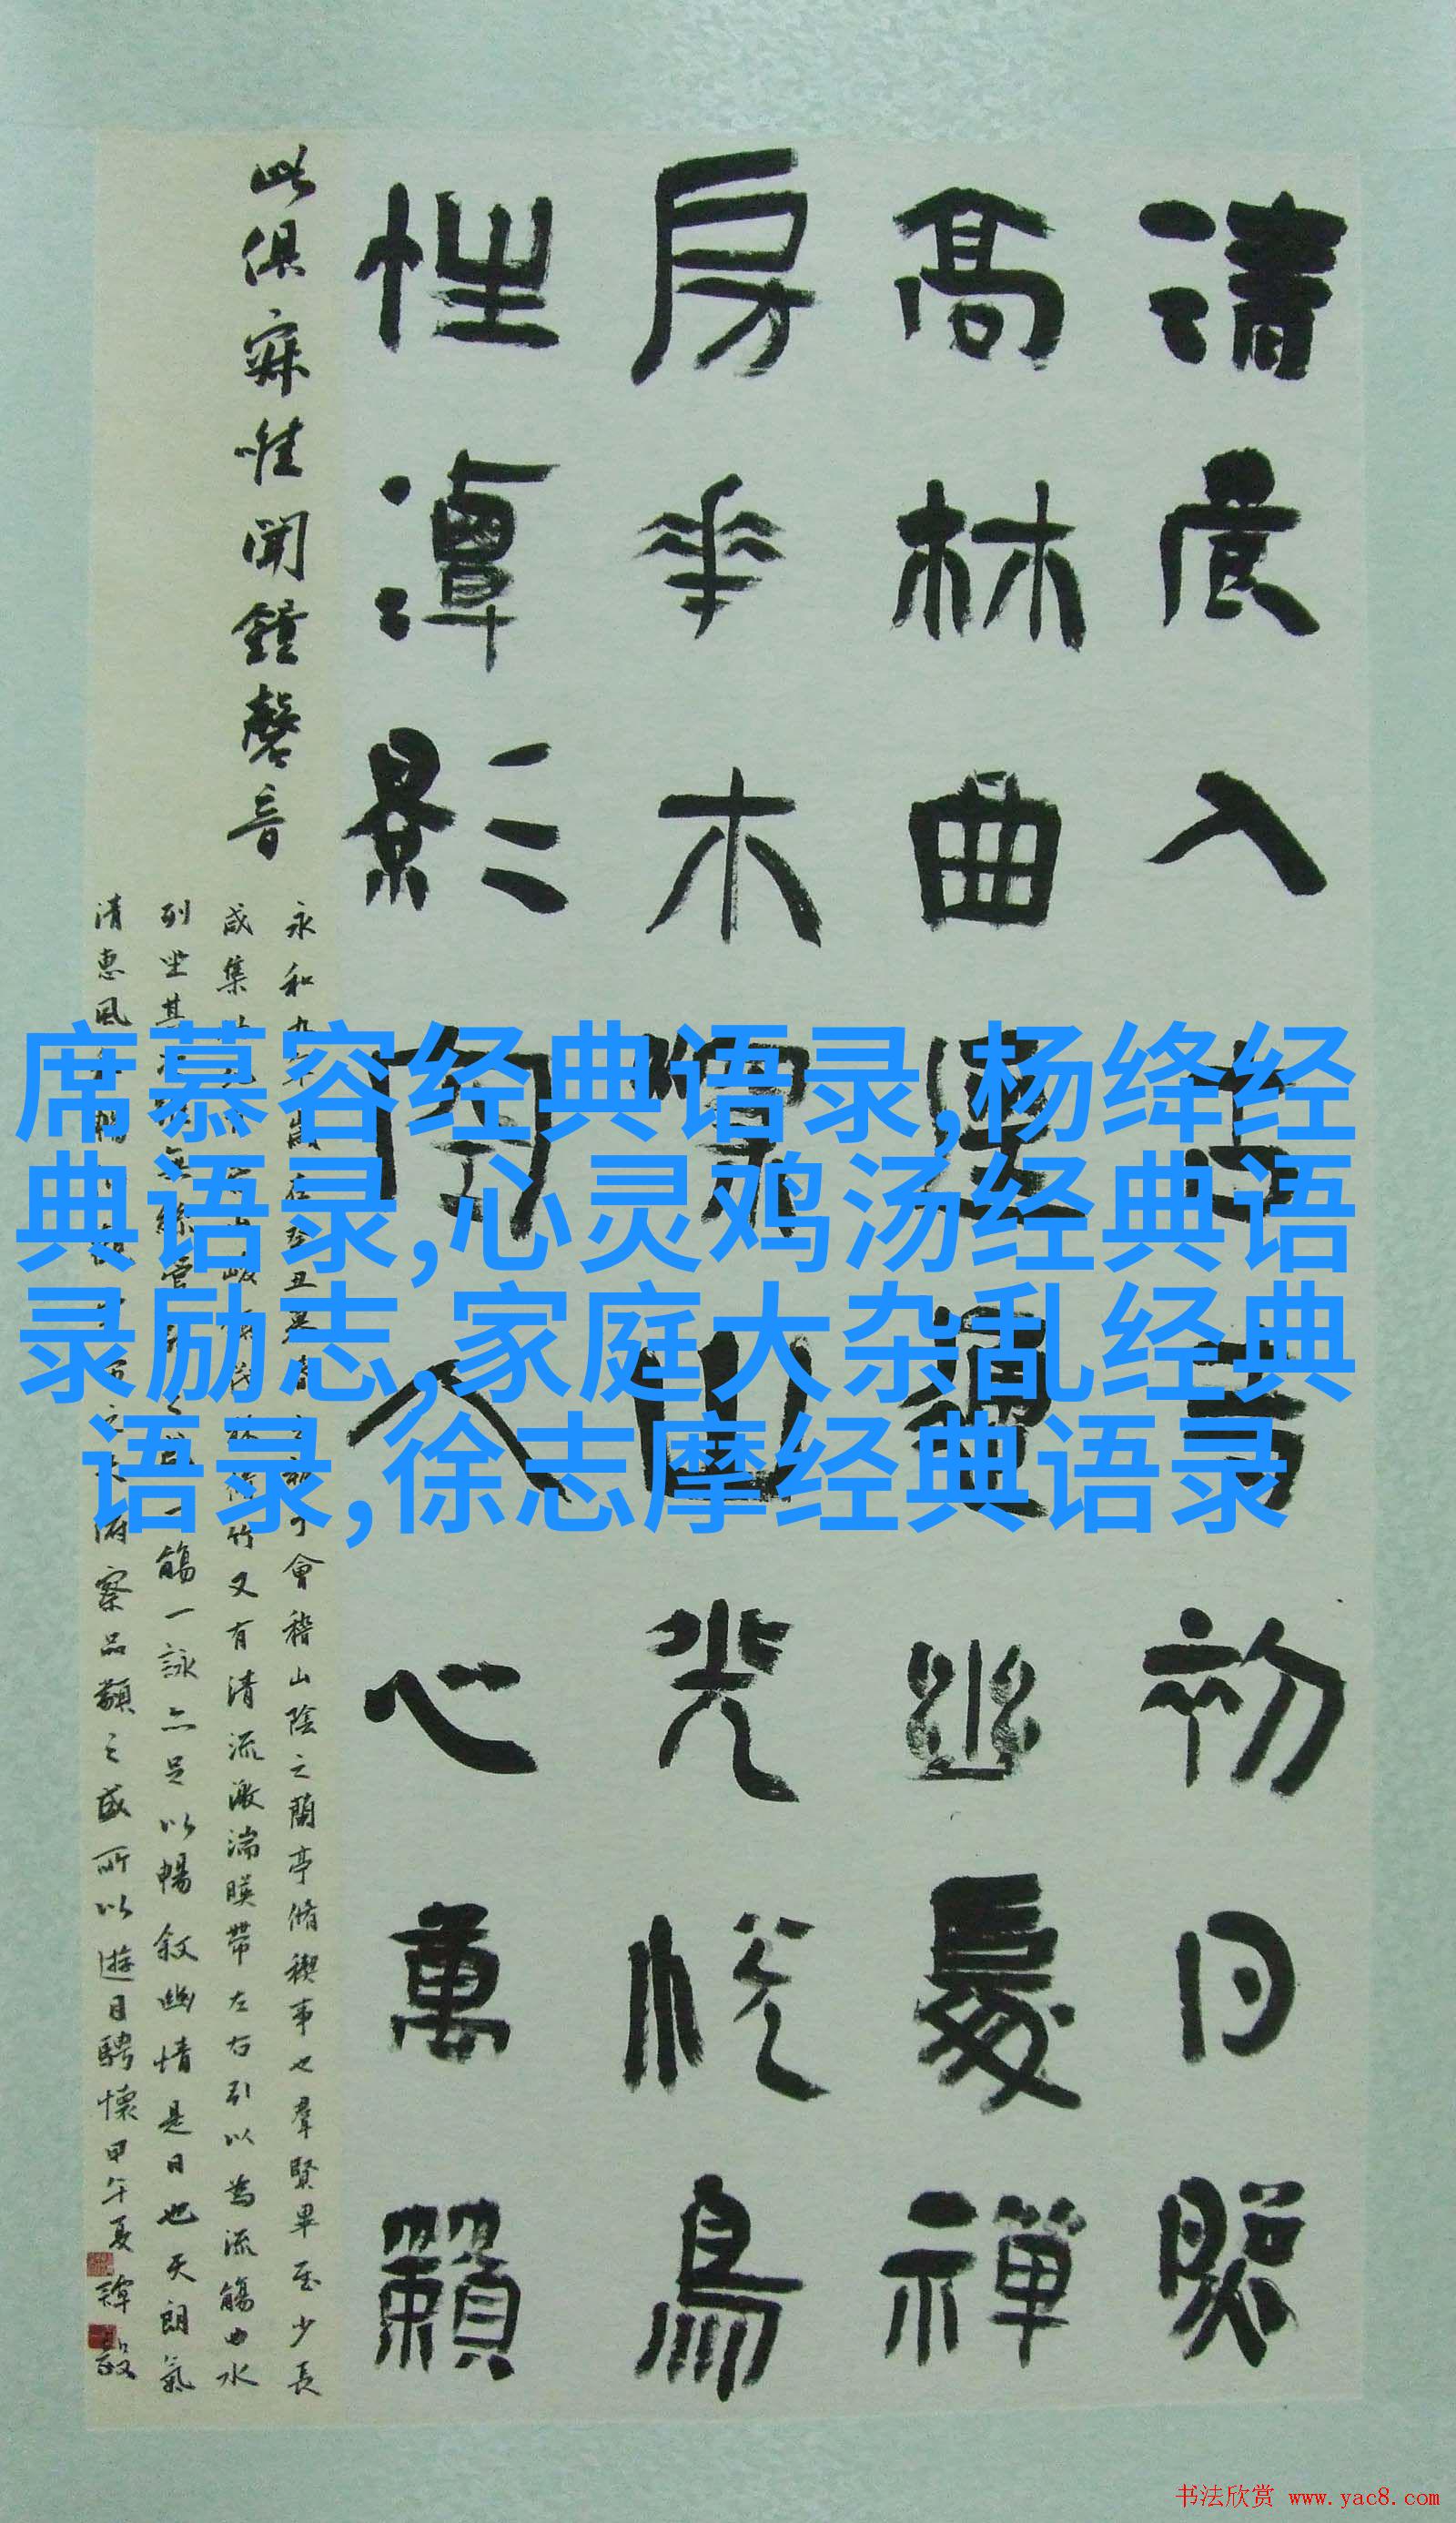 清晨入古寺初日照
高林曲逕通幽處禪
房花木深山光悅鳥
性潭影空人心萬籟
此俱寂惟聞鐘磬音
永和九年歲在癸丑暮春之初會稽山陰之蘭亭脩禊事也羣賢畢至少長
咸集 峻 茂林脩竹又有清流激湍暎帶左右引以為流觴曲水
列坐其次雖無絲管 之盛一觴一詠亦足以暢敘幽情是日也天朗氣
清惠風和暢 宙之大俯察品類之盛所以遊目騁懷甲午夏
席慕容经典语录,杨绛经
典语录,心灵鸡汤经典语
录励志,家庭大杂乱经典
语录,徐志摩经典语录
书法欣赏 www.yac8.com